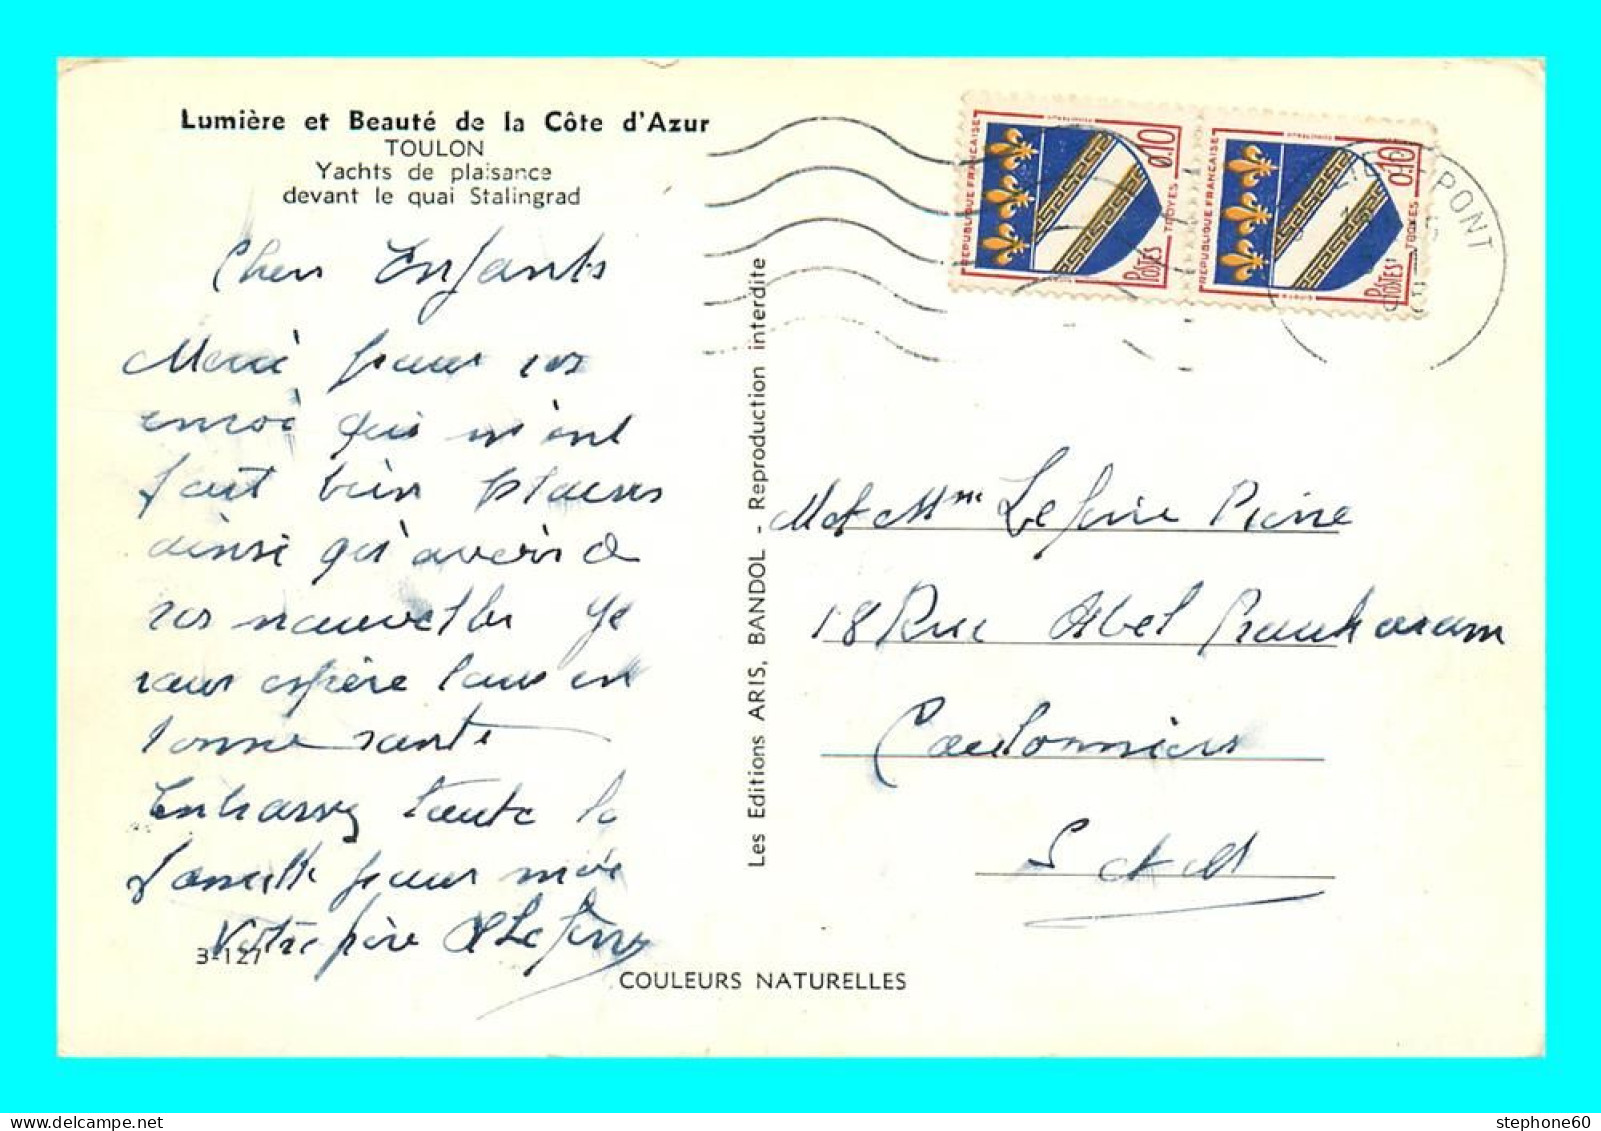 Lumière et Beauté de la Côte d'Azur
TOULON
Yachts de plaisance
devant le quai Stalingrad
Cher Enfants
Merci pour vos
envoi qui m'ont
fait bien plaisir
ainsi qu'avoir de
vos nouvelles Je
vous espère tous en
bonne santé
Embrassez toute la
famille pour moi
Votre père Lefèvre
3-127
COULEURS NATURELLES
Les Editions ARIS, BANDOL - Reproduction interdite
REPUBLIQUE FRANÇAISE
0.10
TROYES
POSTES
REPUBLIQUE FRANÇAISE
0.10
TROYES
POSTES
PONT
M et Mme Pierre
18 Rue Abel
Coulommiers
S et M
stephone60